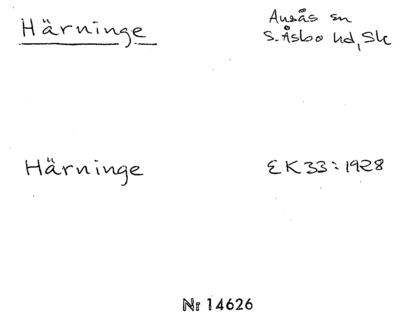 Härninge
Ausås sn
S. Åsbo hd, Sk
Härninge
EK 33:1928
Nr 14626